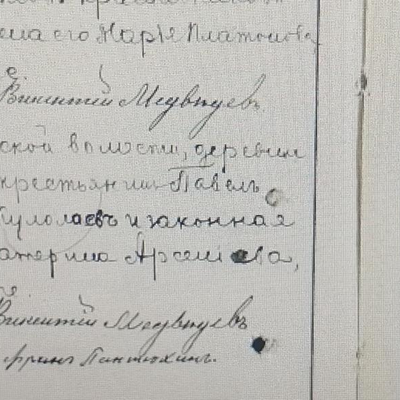 ена его Марія Платонова
Викентій Медвѣдевъ
ской волости, деревни
крестьянинъ Павелъ
Кулолаевъ и законная
атерина Арсениева,
Викентій Медвѣдевъ
Пантюхинъ.